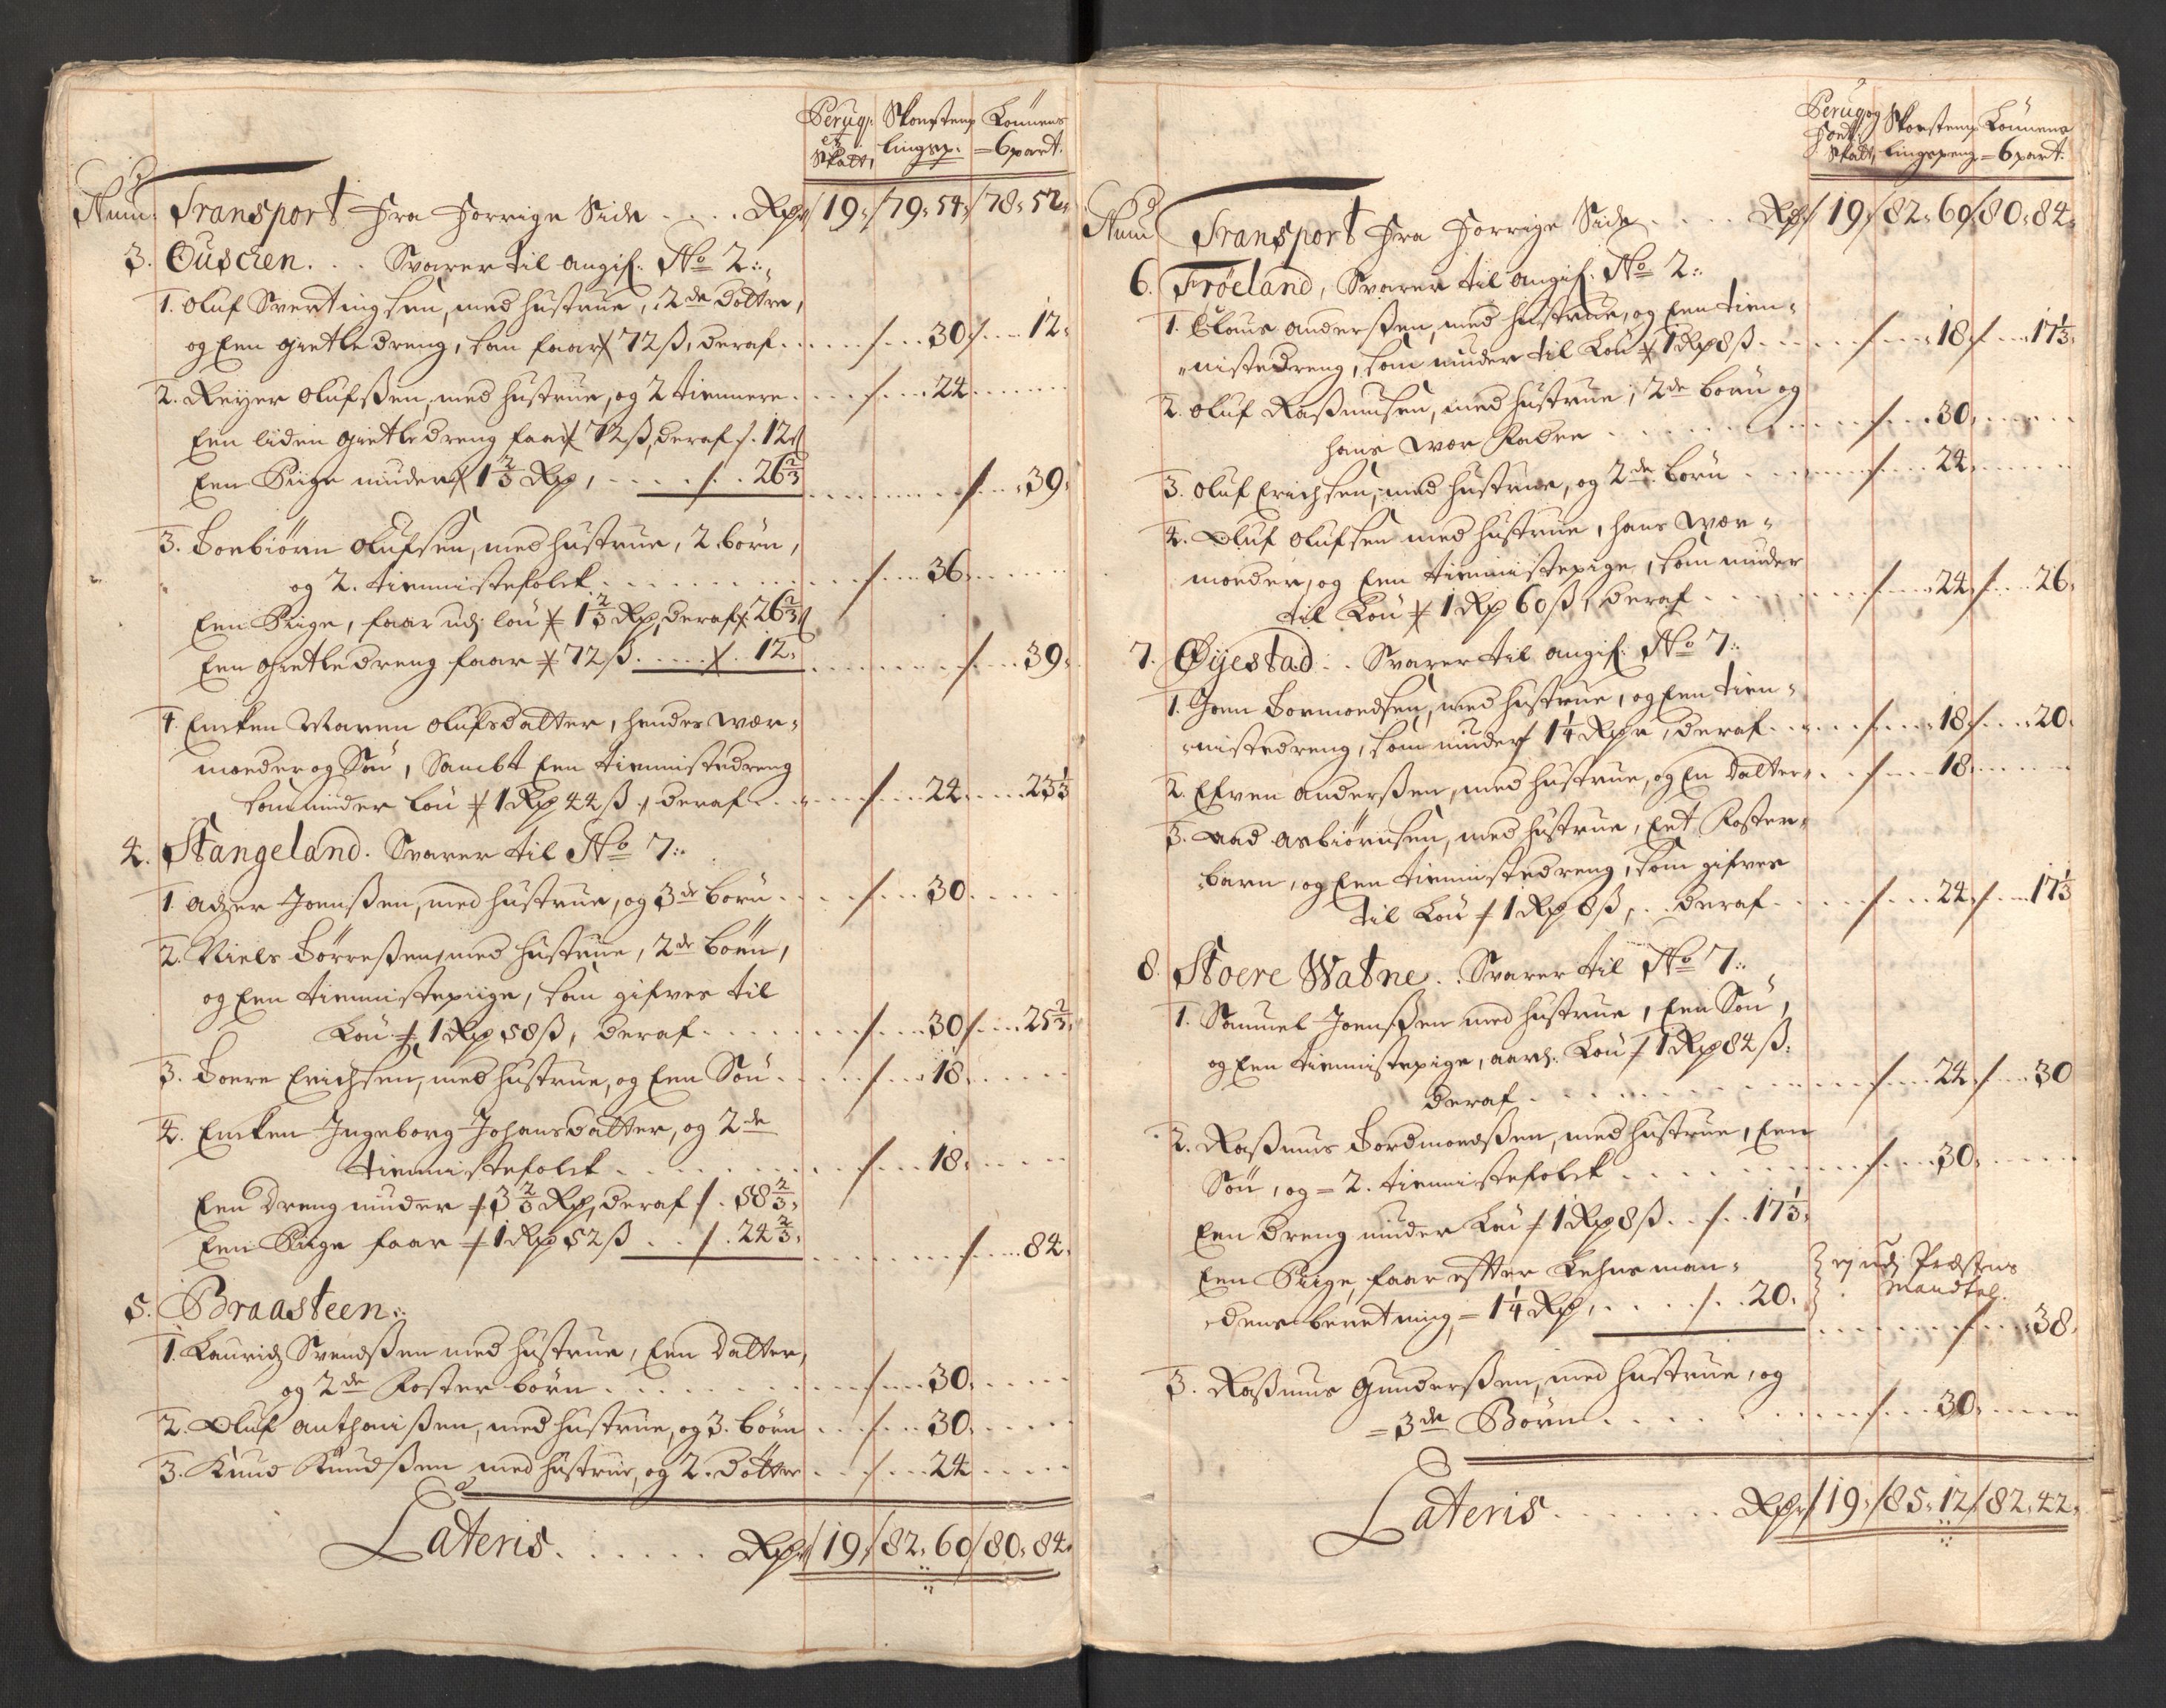 Perugp. Skorsteen Lönnens
etc. lingsp. =6part.
Skatt,
Num: Transport Fra Forrige Side .... Rp 19, 79, 54, 78, 52,
3. Ouscien. .. Svarer til angif. No 2.
1. Oluf Svertingsen, med hustrue, 2de Döttre,
og Een gietledreng, som faar 72 ß, deraf ..... 30 ... 12,
2. Reijer Olufßen, med hustrue, og 2 tiennere .... 24 ...
Een liden gietledreng faar 72 ß, deraf .12
Een Piige niuder 1 2/3 Rp, .... 26 2/3 ........ 39,
3. Torbiörn Olufsen, med hustrue, 2. börn,
og 2. tiennistefolck ........ 36, ....
Een Piige, faar udj lön 1 2/3 Rp, deraf 26 2/3
Een gietledreng faar 72 ß ..... 12, ........ 39,
4. Encken Maren Olufsdatter, hendes Vær-
moeder og Sön, Sambt Een tiennistedreng
som niuder lön 1 Rp 44 ß, deraf .... 24 .... 23 1/3
4. Stangeland. Svarer til No 7.
1. Adzer Joenßen, med hustrue, og 3de börn .... 30 ....
2. Niels Törreßen, med hustrue, 2de börn,
og Een tiennistepiige, som gifves til
Lön 1 Rp 58 ß, deraf ...... 30 ... 25 2/3,
3. Toere Erichsen, med hustrue, og Een Sön .... 18, ....
4. Encken Ingeborg Johansdatter, og 2de
tiennistefolck ........ 18, ....
Een Dreng niuder 3 2/3 Rp, deraf . 58 2/3,
Een Piige faar 1 Rp 52 ß .. 24 2/3, ........ 84,
5. Braasteen.
1. Lauridz Svendßen med hustrue, Een Datter,
og 2de Foster börn ........ 30, ....
2. Oluf Anthonißen, med hustrue, og 3. börn ... 30, ....
3. Knud Knudßen med hustrue, og 2. döttre ... 24 ....
Lateris. ..... Rp 19, 82, 60 80, 84,
Perugog Skorsteen Lönnens
Skatt, lingspeng =6part.
Num Transport Fra Forrige Side .... Rp 19, 82, 60 80, 84,
6. Fröeland, Svarer til angif. No 2.
1. Claus Anderßen, med hustrue, og Een tien-
nistedreng, som niuder til Lön 1 Rp 8 ß ..... 18, ... 17 1/3,
2. Oluf Raßmusen, med hustrue, 2de börn og
hans Vær Fader ........ 30, ....
3. Oluf Erichsen, med hustrue, og 2de börn ..... 24, ....
4. Oluf Olufsen med hustrue, hans Vær-
moeder, og Een tiennistepige, som niuder
til Lön 1 Rp 60 ß, deraf ....... 24, ... 26,
7. Öijestad .. Svarer til angif. No 7.
1. Joen Tormoedsen, med hustrue, og Een tien-
nistedreng, som niuder 1 1/4 Rp, deraf ..... 18, ... 20,
2. Efven Anderßen, med hustrue, og En Datter .... 18, ....
3. Aad Asbiörnsen, med hustrue, Eet Foster-
barn, og Een tiennistedreng, som gifves
til Lön 1 Rp 8 ß, .. deraf ...... 24, ... 17 1/3
8. Stoere Watne. . Svarer til No 7.
1. Samuel Joenßen med hustrue, Een Sön,
og Een tiennistepige, aarl. Lön 1 Rp 84 ß.
deraf ............ 24, ... 30
2. Raßmus Tordmoedßen, med hustrue, Een
Sön, og = 2. tiennistefolck ........ 30, ....
Een dreng niuder Lön 1 Rp 8 ß ... 17 1/3,
Een Piige, faar efter Lehns man- ej udj Præstens
dens beretning, = 1 1/4 Rp, .... 20, Mandtal.
........ 38,
3. Raßmus Gunderßen, med hustrue, og
= 3de Börn ........ 30, ....
Lateris ....... Rp 19, 85, 12 82, 42,